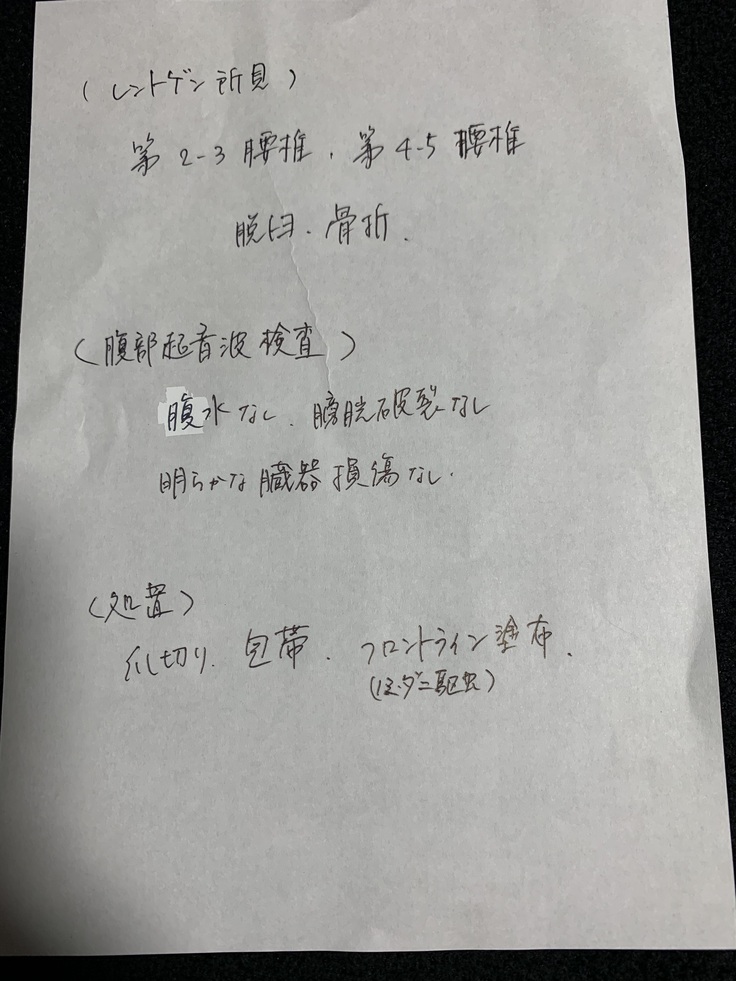 (レントゲン所見)
第2-3腰椎、第4-5腰椎
脱臼、骨折.
(腹部超音波検査)
腹水なし、膀胱破裂なし
明らかな臓器損傷なし.
(処置)
爪切り、包帯、フロントライン塗布.
(ノミ・ダニ駆虫)